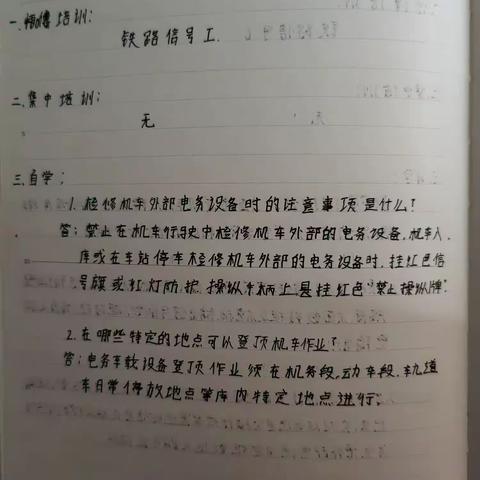 一、师傅培训:
铁路信号工.
二、集中培训:
无
三、自学:
1. 检修机车外部电务设备时的注意事项是什么?
答:禁止在机车行驶中检修机车外部的电务设备,机车入
库或在车站停车检修机车外部的电务设备时,挂红色信
号旗或红灯防护,操纵手柄上悬挂红色“禁止操纵牌”
2. 在哪些特定的地点可以登顶机车作业?
答:电务车载设备登顶作业须在机务段,动车段,轨道
车日常停放地点等库内特定地点进行。